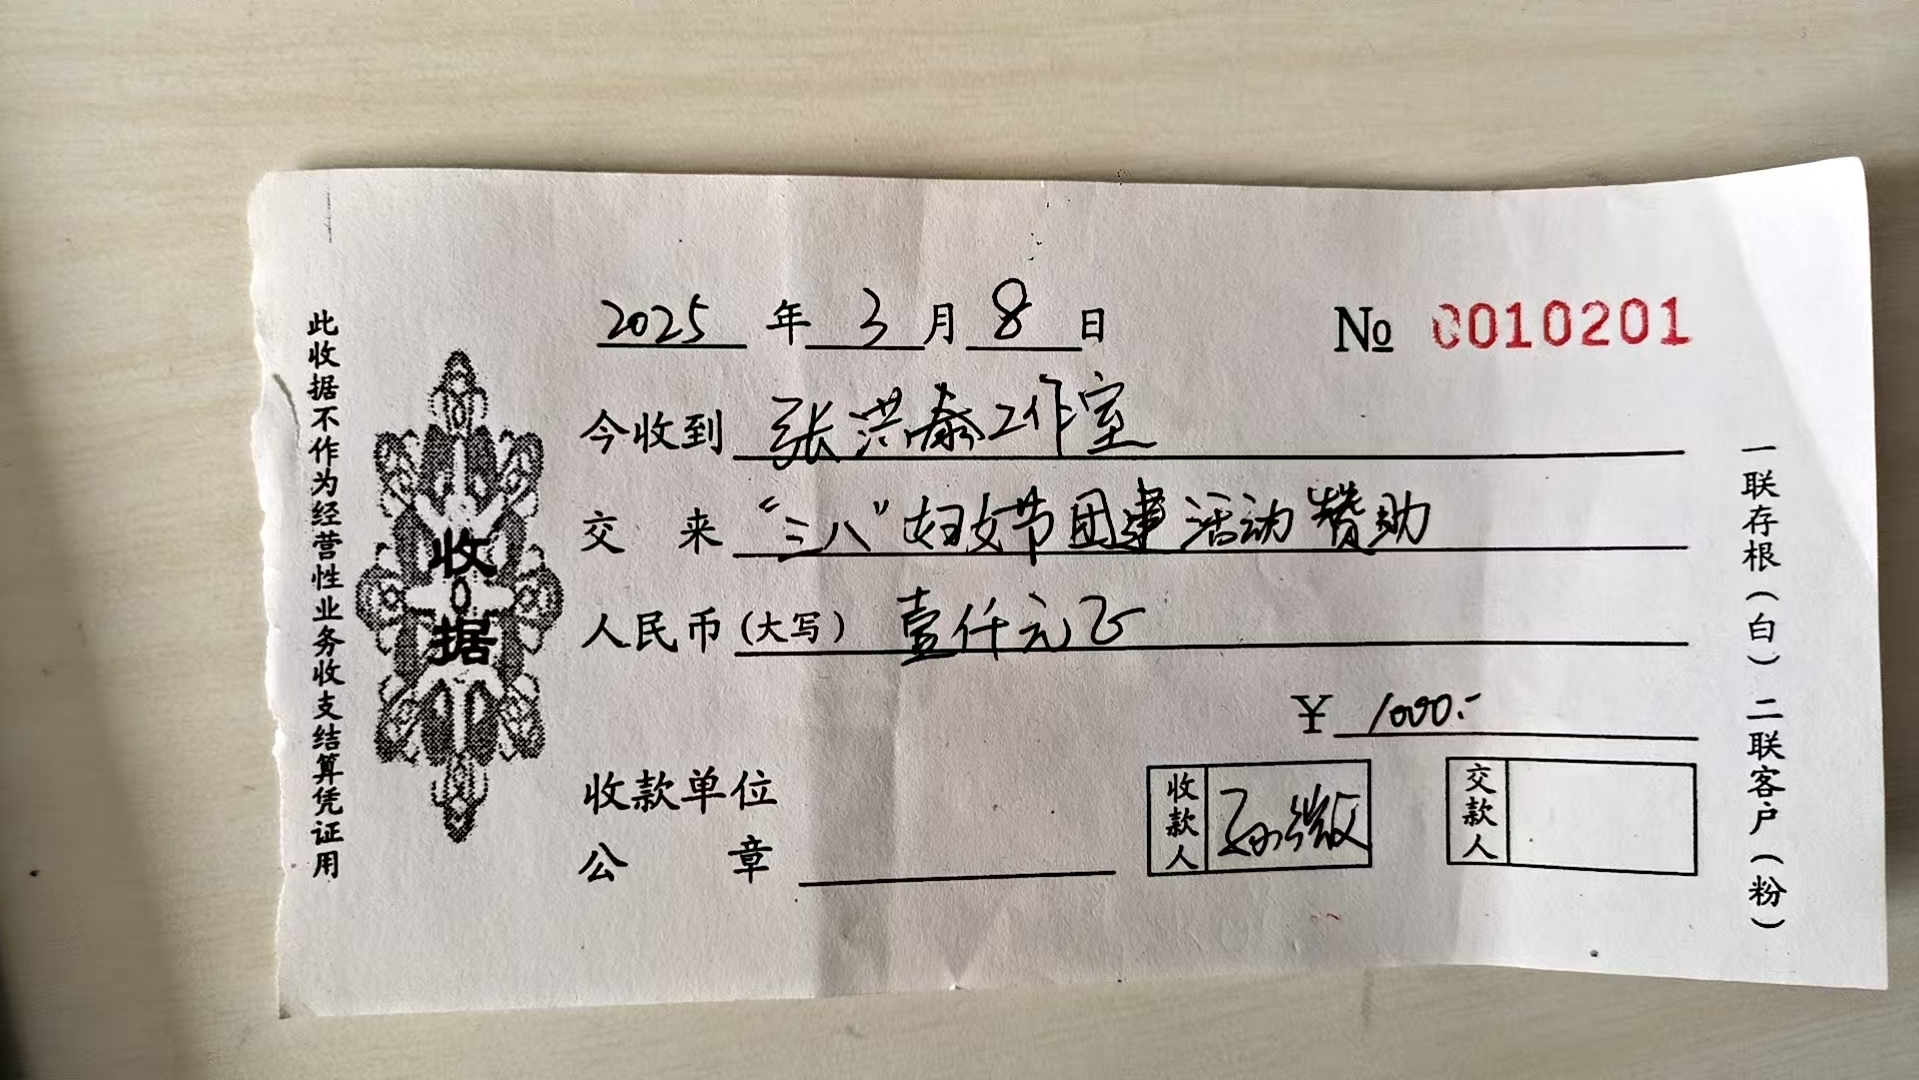 此收据不作为经营性业务收支结算凭证用
收据
2025年3月8日
No 0010201
今收到 张洪泰工作室
交来 “三八”妇女节团建活动赞助
人民币(大写) 壹仟元正
¥ 1000.-
收款单位
公章
收款人 孙微
交款人
一联存根(白) 二联客户(粉)